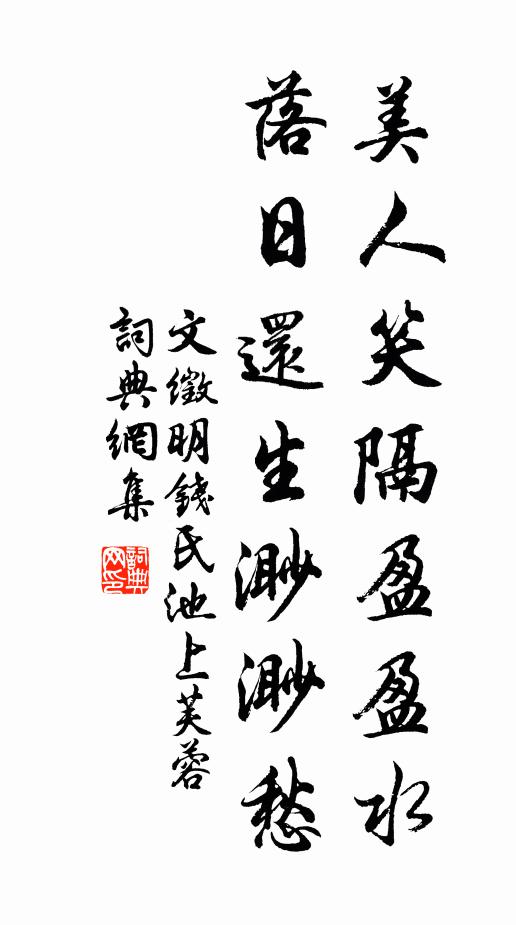 美人笑隔盈盈水
落日還生渺渺愁
文徵明錢氏池上芙蓉
詞典網集
詞典
网印